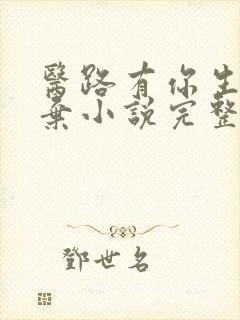 醫路有你生
棄小說完整
鄧世名